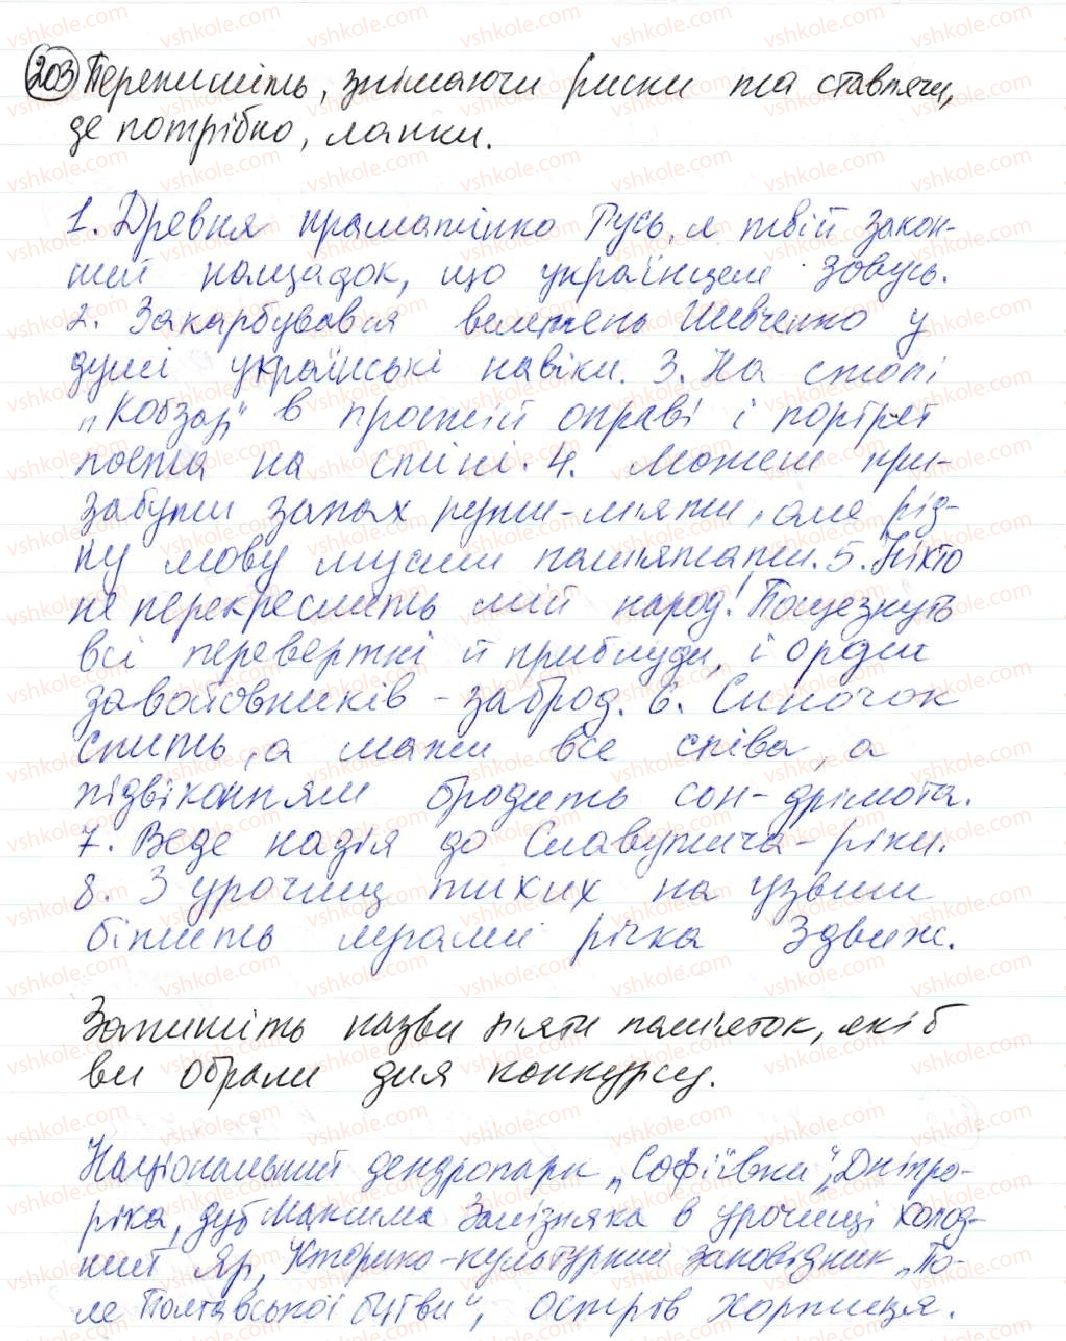 203 Перепишіть, знімаючи риски та ставлячи,
де потрібно, лапки.
1. Древня праматінко Русь, я твій закон-
ний нащадок, що українцем зовусь.
2. Закарбувався велетень Шевченко у
душі українські навіки. 3. На столі
„Кобзар" в простій оправі і портрет
поета на стіні. 4. Можеш при-
забути запах рути-м'яти, але рід-
ну мову мусиш пам'ятати. 5. Ніхто
не перекреслить мій народ! Пощезнуть
всі перевертні й приблуди, і орди
завойовників - заброд. 6. Синочок
спить, а мати все співа, а
підвіконням бродить сон-дрімота.
7. Веде надія до Славутича-ріки.
8. З урочищ тихих на узвиш
біжить ярами річка Здвиж.
Запишіть назви п'яти пам'яток, які б
ви обрали для конкурсу.
Національний дендропарк „Софіївка", Дніпро-
ріка, дуб Максима Залізняка в урочищі Холод-
ний Яр, Історико-культурний заповідник „По-
ле Полтавської битви", острів Хортиця.